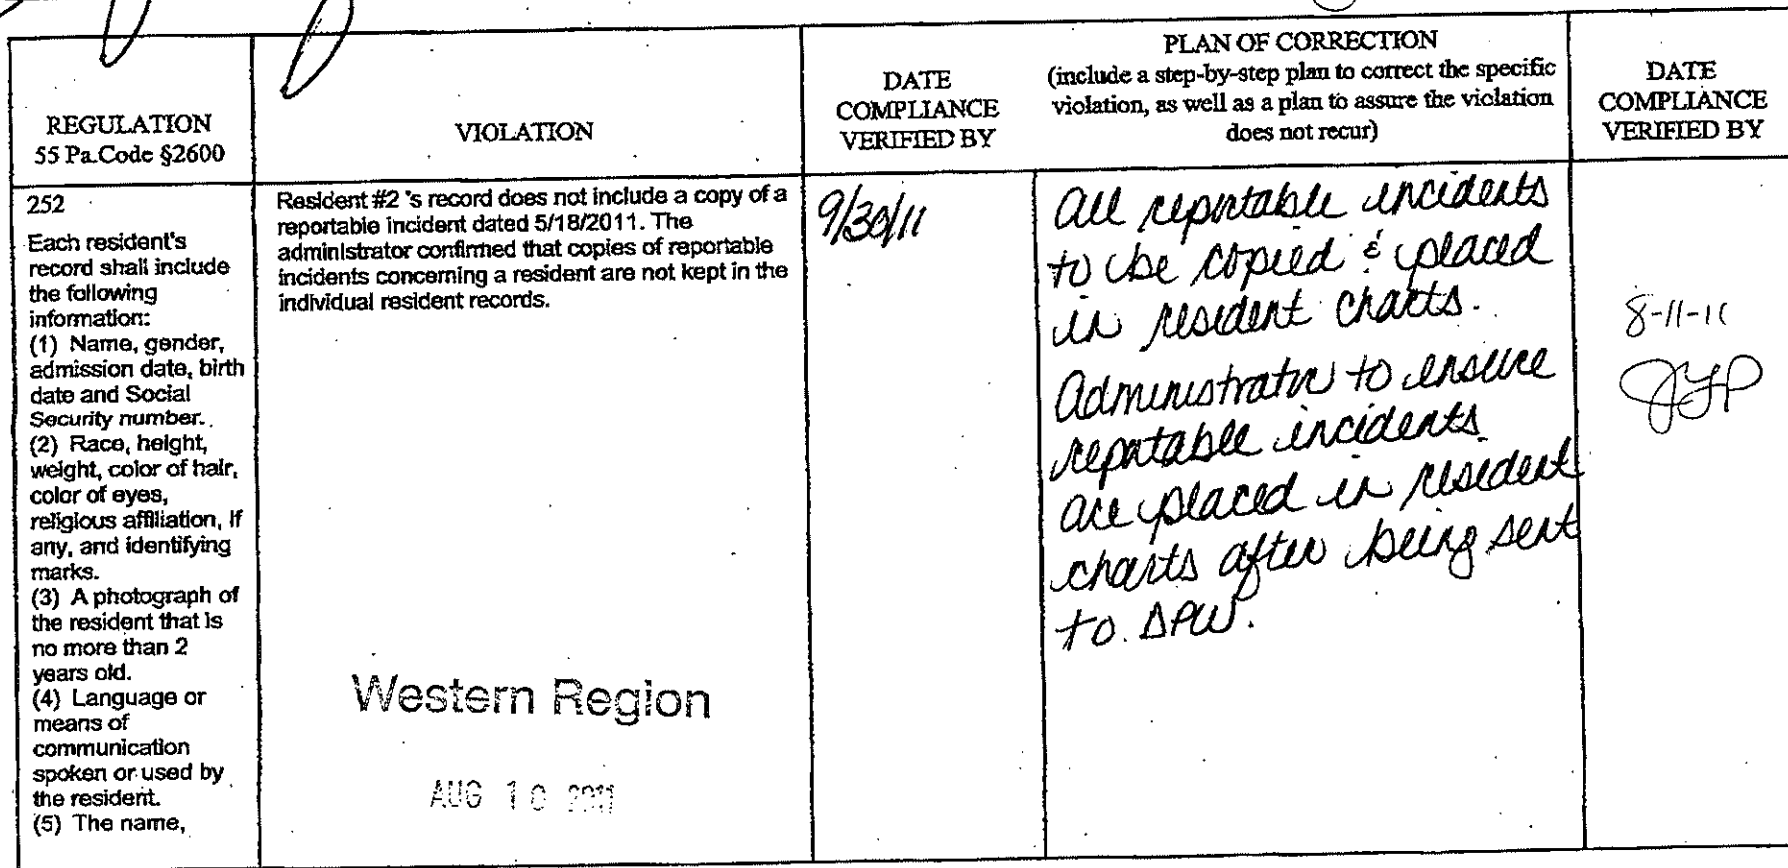 REGULATION
55 Pa.Code §2600
VIOLATION
DATE
COMPLIANCE
VERIFIED BY
PLAN OF CORRECTION
(include a step-by-step plan to correct the specific
violation, as well as a plan to assure the violation
does not recur)
DATE
COMPLIANCE
VERIFIED BY
252
Each resident's
record shall include
the following
information:
(1) Name, gender,
admission date, birth
date and Social
Security number.
(2) Race, height,
weight, color of hair,
color of eyes,
religious affiliation, if
any, and identifying
marks.
(3) A photograph of
the resident that is
no more than 2
years old.
(4) Language or
means of
communication
spoken or used by
the resident.
(5) The name,
Resident #2 's record does not include a copy of a
reportable incident dated 5/18/2011. The
administrator confirmed that copies of reportable
incidents concerning a resident are not kept in the
individual resident records.
Western Region
AUG 10 2011
9/30/11
All reportable incidents
to be copied & placed
in resident charts.
Administrator to ensure
reportable incidents
are placed in resident
charts after being sent
to DPW.
8-11-11